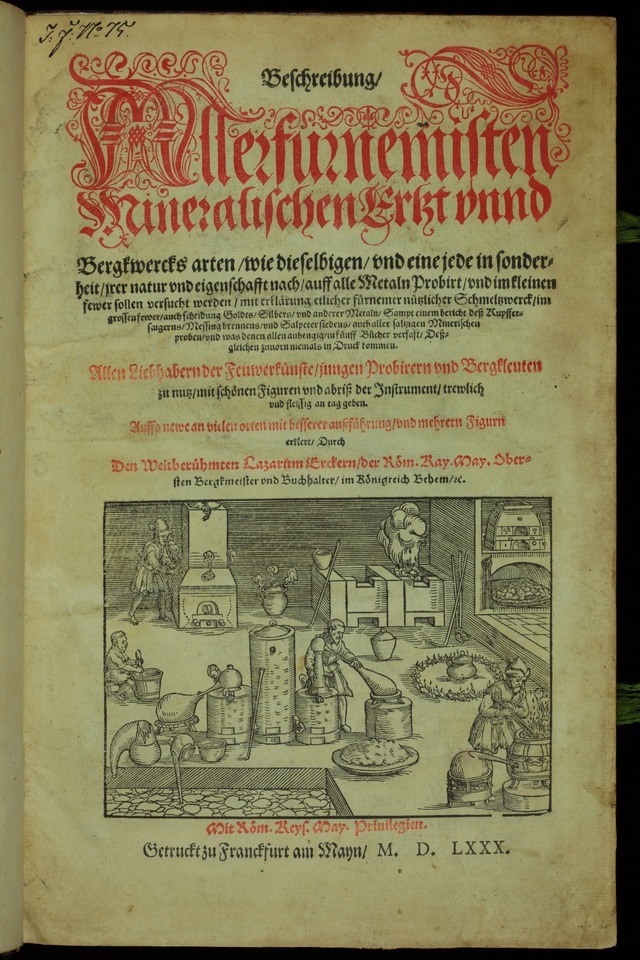 J. J. No 75.
Beschreibung/
Allerfürnemisten
Mineralischen Ertzt vnnd
Bergkwercks arten/ wie dieselbigen/ vnd eine jede in sonder-
heit/ jrer natur vnd eigenschafft nach/ auff alle Metaln Probirt/ vnd im kleinen
fewer sollen versucht werden/ mit erklärung etlicher fürnemer nützlicher Schmeltzwerck/ im
grossen fewer/ auch scheidung Goldts/ Silbers/ vnd anderer Metaln/ Sampt einem bericht deß Kupffer-
saigerns/ Messing brennens/ vnd Salpeter siedens/ auch aller saltzigen Minerischen
proben/ vnd was denen allen anhengig/ in fünff Bücher verfast/ Deß-
gleichen zuuorn niemals in Druck kommen.
Allen Liebhabern der Feuwerkünste/ jungen Probirern vnd Bergkleuten
zu nutz/ mit schönen Figuren vnd abriß der Instrument/ trewlich
vnd fleissig an tag geben.
Auffs newe an vielen orten mit besserer außführung/ vnd mehrern Figurn
erklert/ Durch
Den Weitberühmten Lazarum Erckern/ der Röm. Kay. May. Ober-
sten Bergkmeister vnd Buchhalter/ im Königreich Behem/ ꝛc.
Mit Röm. Keys. May. Priuilegien.
Getruckt zu Franckfurt am Mayn/ M. D. LXXX.